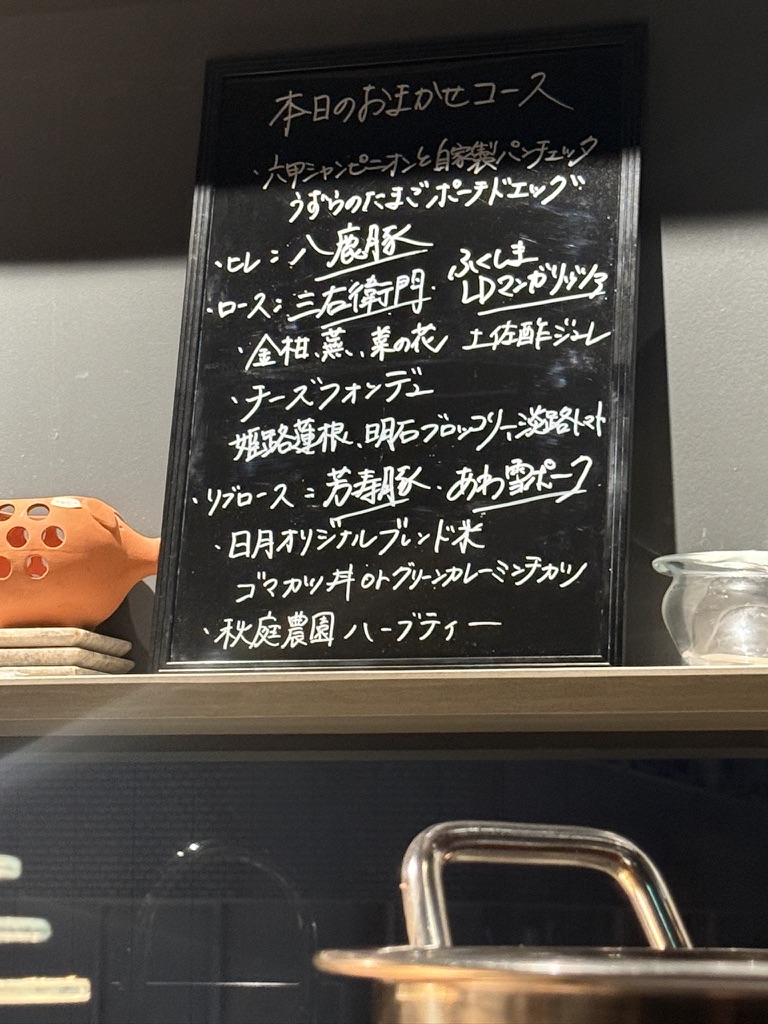 本日のおまかせコース
・六甲シャンピニオンと自家製パンチェッタ
うずらのたまごポーチドエッグ
・ヒレ：八鹿豚
・ロース：三右衛門 ふくしまLDマンガリッツァ
・金柑、蕪、菜の花 土佐酢ジュレ
・チーズフォンデュ
姫路蓮根、明石ブロッコリー、淡路トマト
・リブロース：芳寿豚、あわ雪ポーク
・日月オリジナルブレンド米
ゴマカツ丼 or グリーンカレーミンチカツ
・秋庭農園 ハーブティー